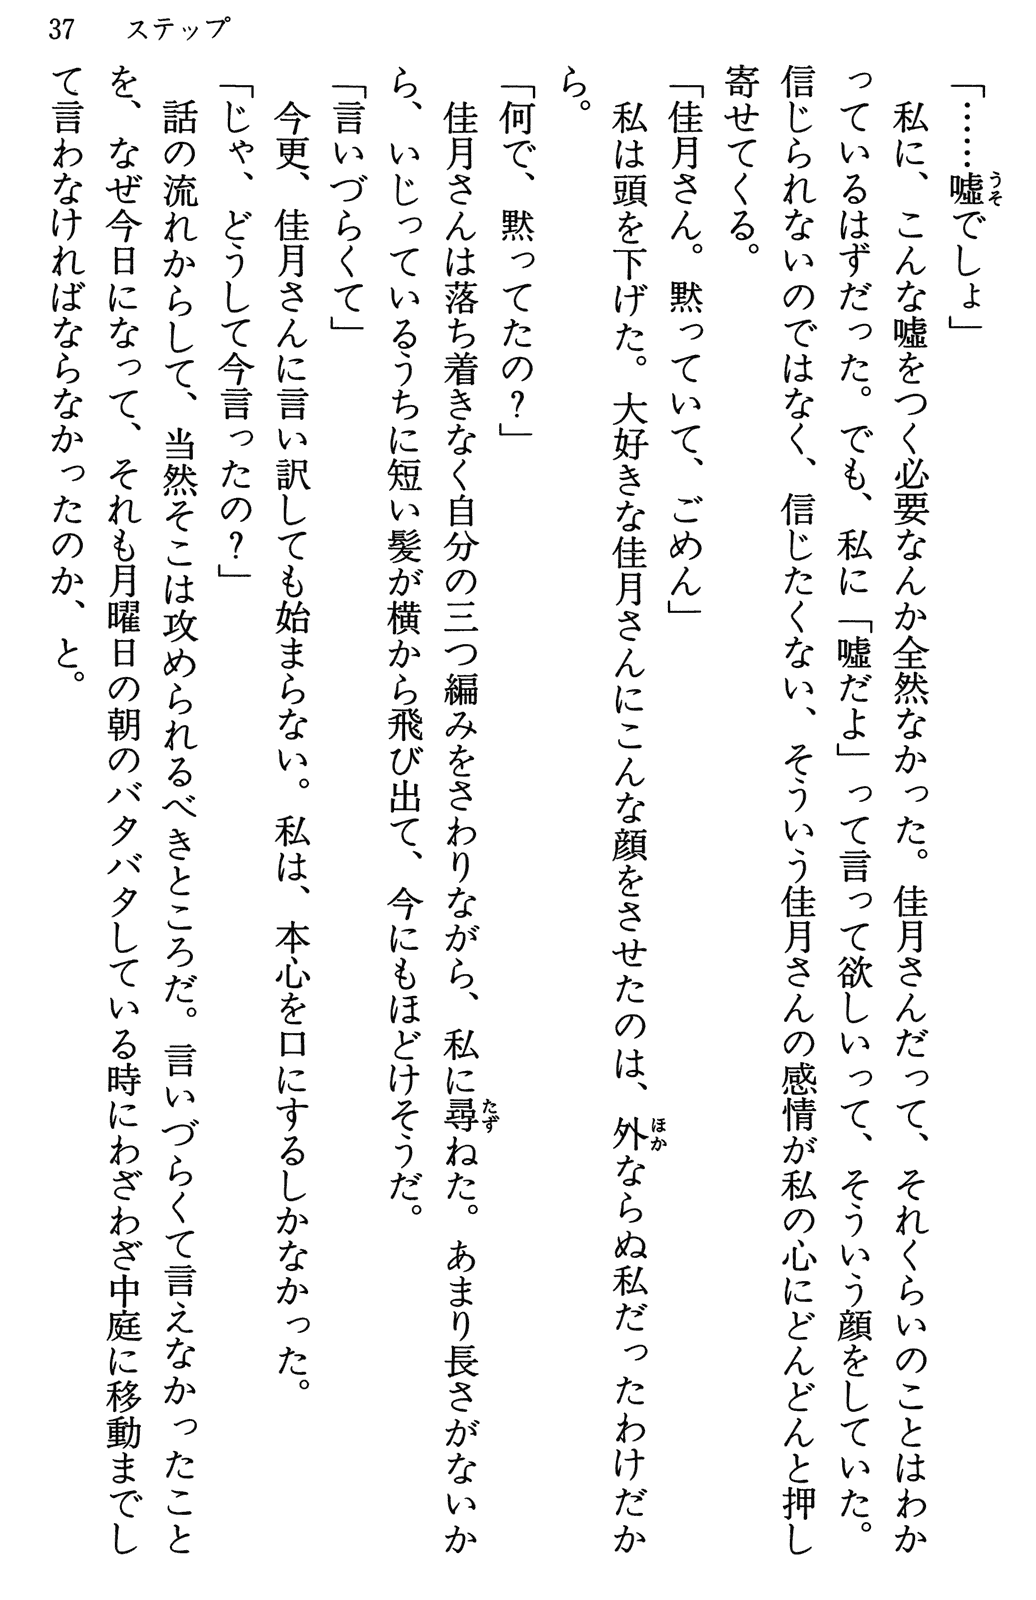 37　ステップ
「……嘘でしょ」
　私に、こんな嘘をつく必要なんか全然なかった。佳月さんだって、それくらいのことはわか
っているはずだった。でも、私に「嘘だよ」って言って欲しいって、そういう顔をしていた。
信じられないのではなく、信じたくない、そういう佳月さんの感情が私の心にどんどんと押し
寄せてくる。
「佳月さん。黙っていて、ごめん」
　私は頭を下げた。大好きな佳月さんにこんな顔をさせたのは、外ならぬ私だったわけだか
ら。
「何で、黙ってたの？」
　佳月さんは落ち着きなく自分の三つ編みをさわりながら、私に尋ねた。あまり長さがないか
ら、いじっているうちに短い髪が横から飛び出て、今にもほどけそうだ。
「言いづらくて」
　今更、佳月さんに言い訳しても始まらない。私は、本心を口にするしかなかった。
「じゃ、どうして今言ったの？」
　話の流れからして、当然そこは攻められるべきところだ。言いづらくて言えなかったこと
を、なぜ今日になって、それも月曜日の朝のバタバタしている時にわざわざ中庭に移動までし
て言わなければならなかったのか、と。